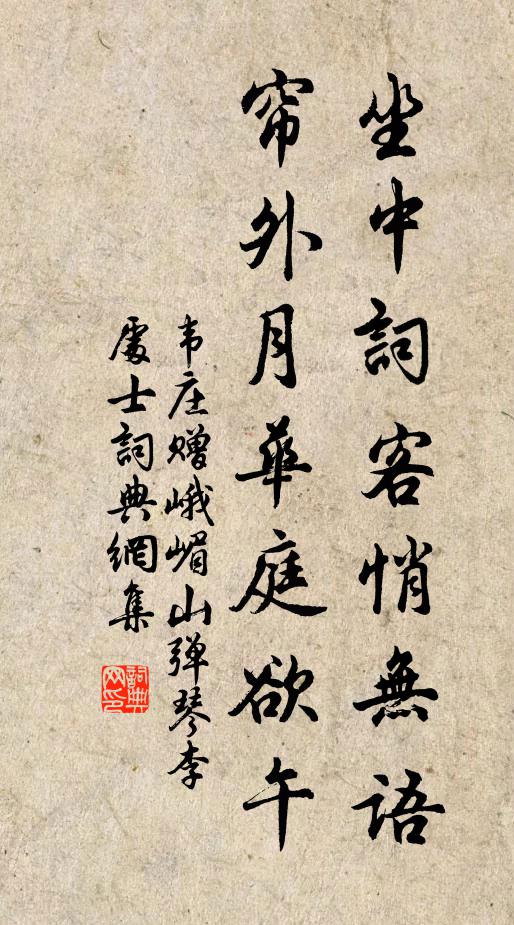 坐中詞客悄無語
帘外月華庭欲午
韦庄赠峨嵋山弹琴李
處士詞典網集
詞典
网印